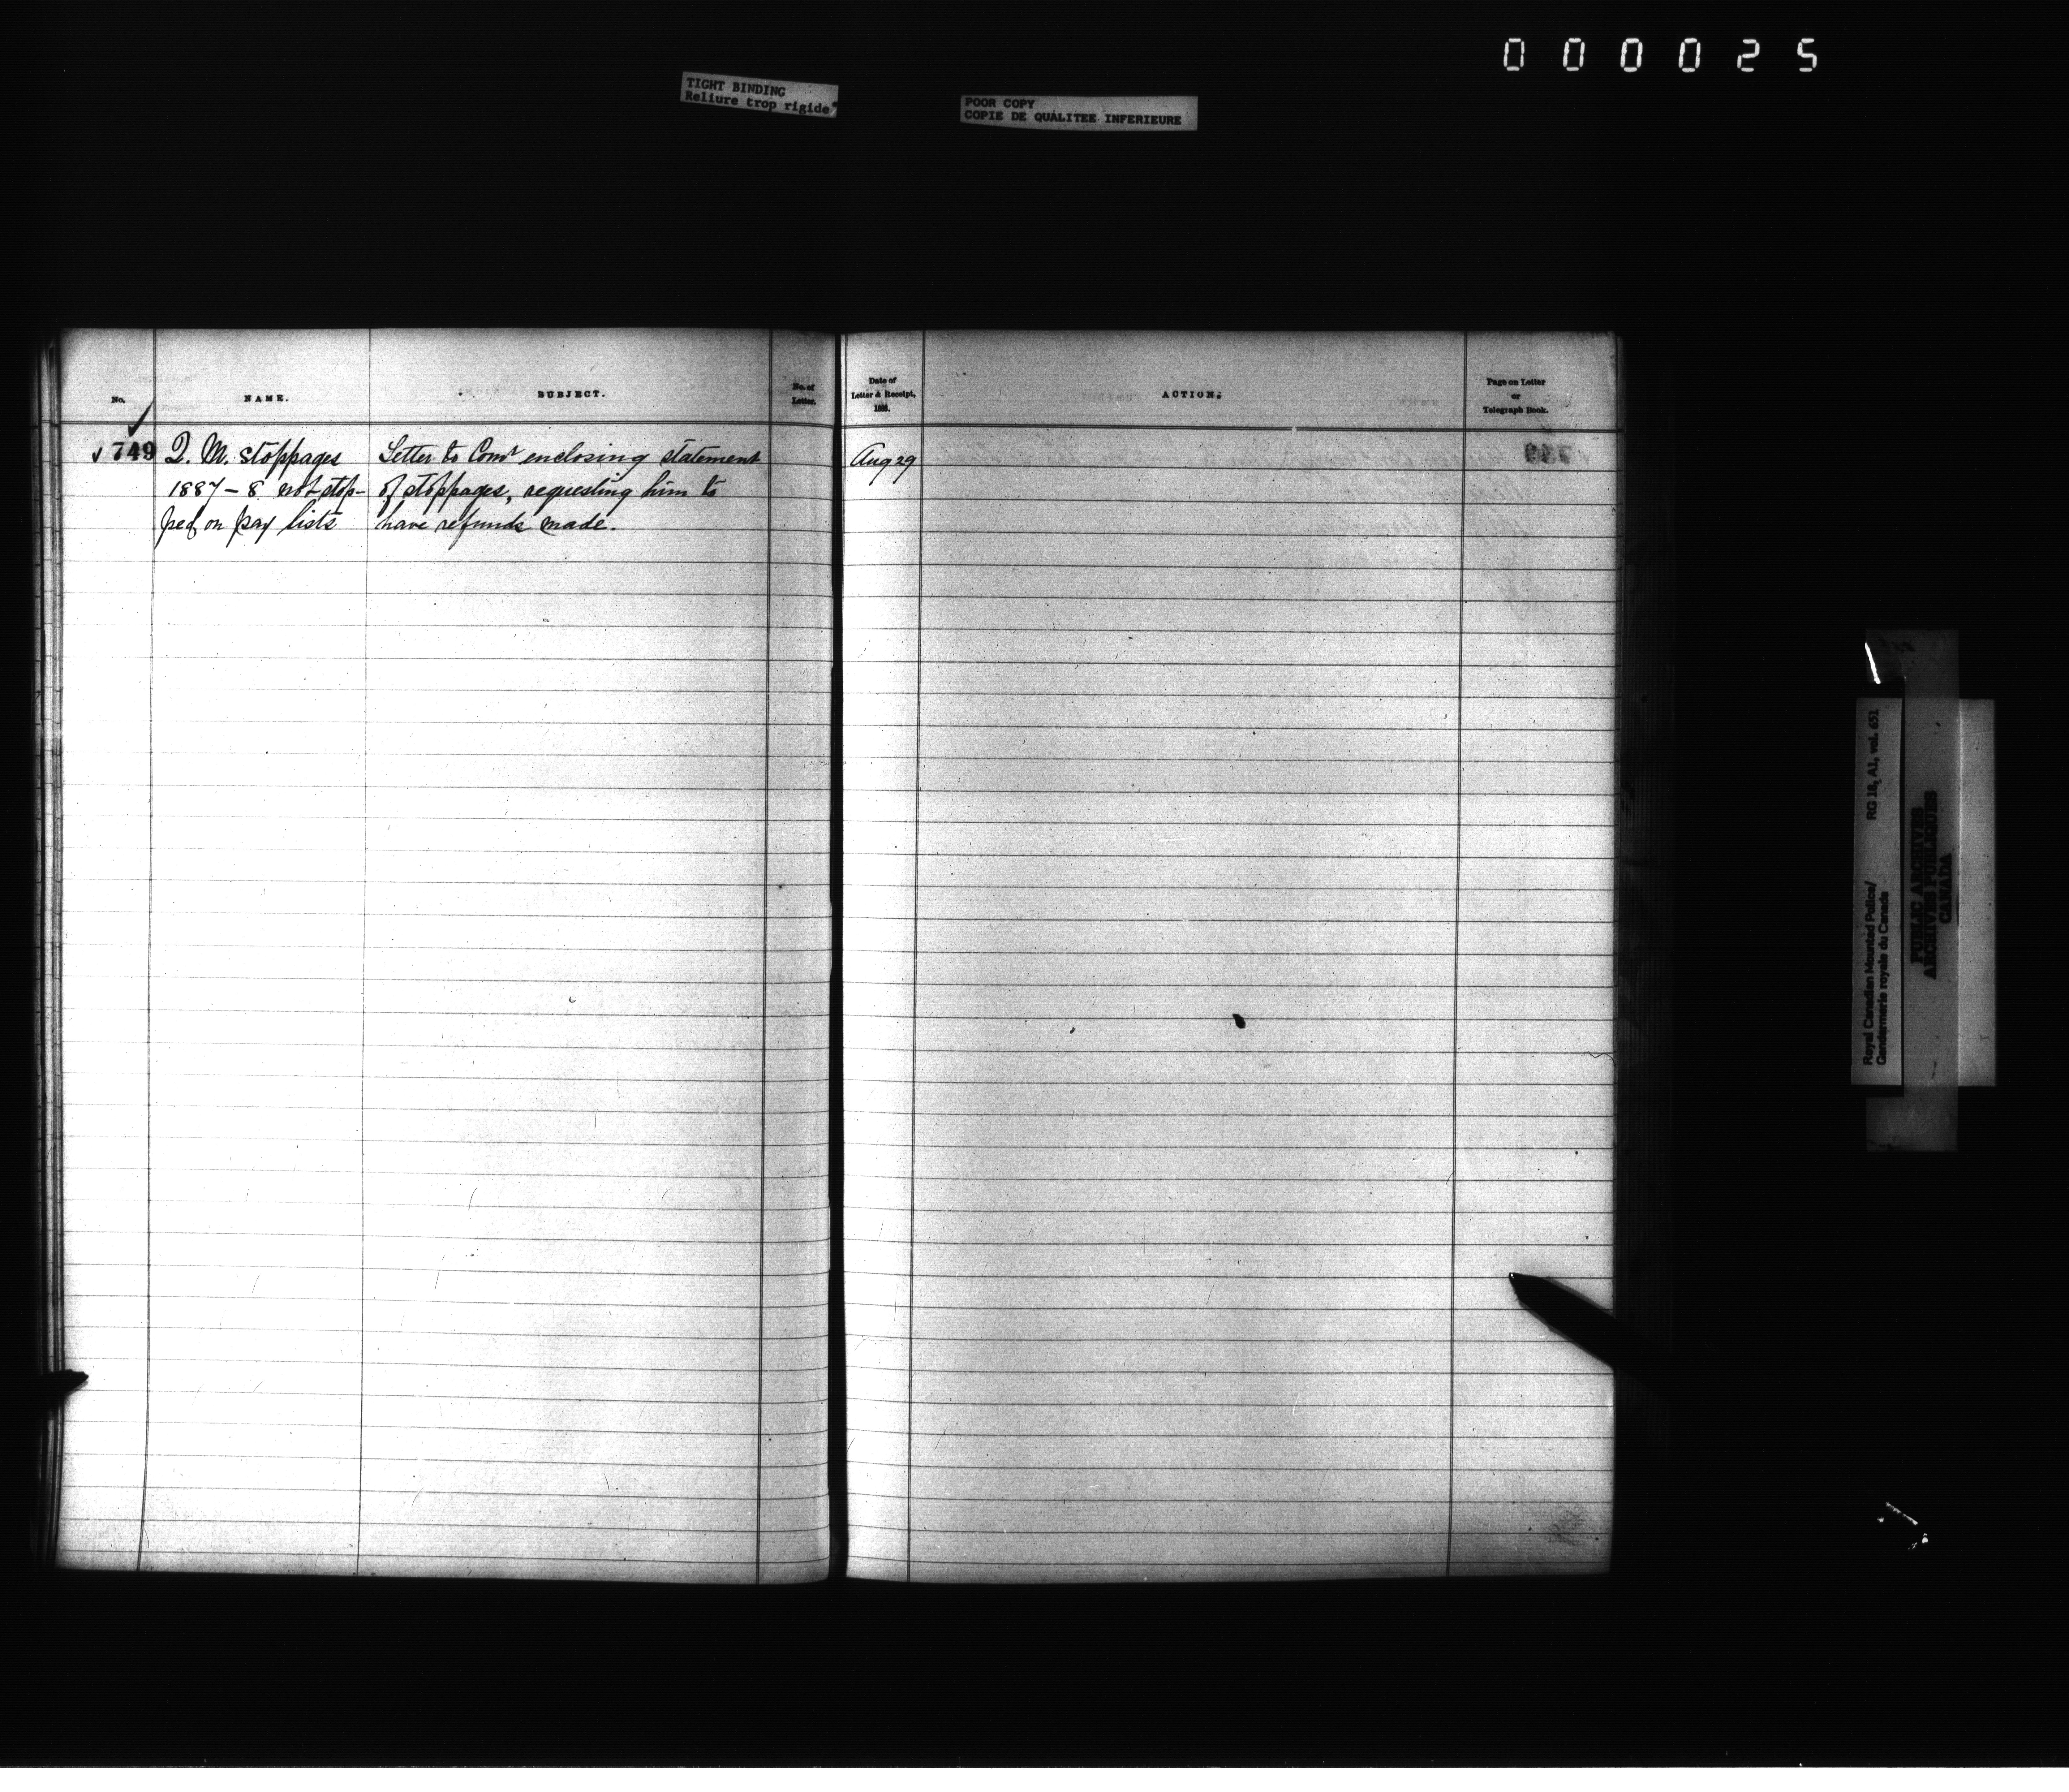 000025
TIGHT BINDING
Reliure trop rigide
POOR COPY
COPIE DE QUALITEE INFERIEURE
No.
NAME.
SUBJECT.
No. of
Letter.
Date of
Letter & Receipt,
188
ACTION.
Page on Letter
or
Telegraph Book.
749 Q. M. stoppages Letter to Comr enclosing statement Aug 29
1887-8 not stop- of stoppages, requesting him to
ped on pay lists have refunds made.
Royal Canadian Mounted Police/ RG 18, A1, vol. 651
Gendarmerie royale du Canada
PUBLIC ARCHIVES
ARCHIVES PUBLIQUES
CANADA